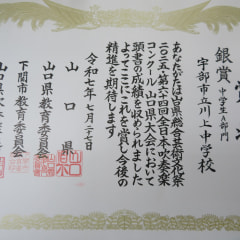 賞
銀賞 中学生A部門
宇部市立川上中学校
あなたがたは山口県総合芸術文化祭
二〇二五第六十四回全日本吹奏楽
コンクール山口県大会において
頭書の成績を収められました
よってここにこれを賞し今後の
精進を期待します
令和七年七月二十七日
山口県
山口県教育委員会
下関市教育委員会